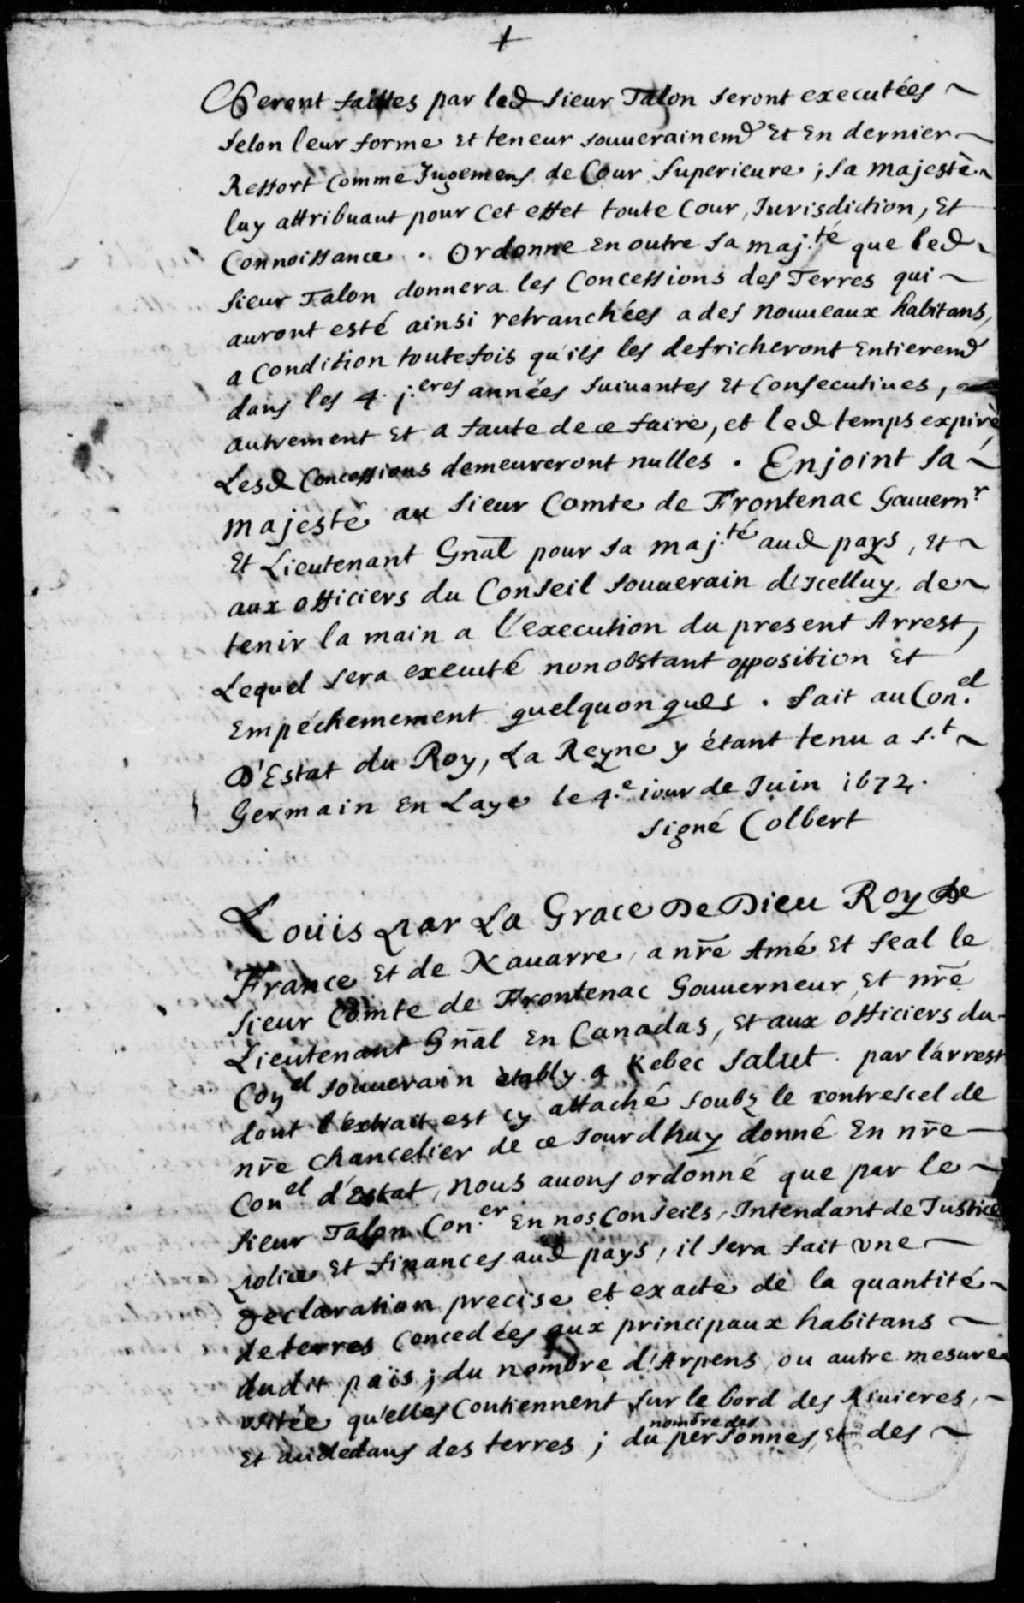 +
seront faittes par led sieur Talon seront executées ~
selon leur forme et teneur souuerainemt Et En dernier ~
Ressort Comme Jugemens de Cour Superieure ; sa majesté ~
luy attribuant pour Cet effet toute Cour, Jurisdiction, Et
Connoissance . Ordonne En outre sa maj.té que led ~
sieur Talon donnera les Concessions des Terres qui ~
auront esté ainsi retranchées a des nouueaux habitans,
a Condition toutefois qu'ils les defricheront Entieremt
dans les 4 p.eres années suiuantes Et Consecutiues,
autrement Et a faute de ce faire, et led temps expiré,
Lesd Concessions demeureront nulles . Enjoint sa ~
majesté au sieur Comte de Frontenac Gouuernr
Et Lieutenant Gñal pour sa maj.té aud pays, Et ~
aux officiers du Conseil souuerain d'Icelluy, de ~
tenir la main a l'execution du present Arrest,
Lequel sera executé nonobstant opposition Et
Empéchemement quelquonques . fait au Con.el
D'Estat du Roy, La Reyne y étant tenu a s.t ~
Germain En Laye le 4.e iour de Juin 1672.
signé Colbert
Loüis par La Grace De Dieu Roy De
France Et de Nauarre, a nr̃e Amé Et feal le
sieur Comte de Frontenac Gouuerneur, Et nr̃e
Lieutenant Gñal En Canadas, Et aux officiers du
Coyel souuerain etably a Kebec salut . par l'arrest
dont l'éxtrait est cy attaché soubz le contrescel de
nr̃e chancelier de ce Jourdhuy donné En nr̃e
Conel d'Estat, nous auons ordonné que par le ~
sieur Talon Con.er En nos Conseils, Intendant de Justice
police Et finances aud pays, il sera fait vne ~
Declaration precise et exacte de la quantité ~
de terres Concedées aux principaux habitans ~
dudit païs ; du nombre d'Arpens ou autre mesure
vsitée qu'elles Contiennent sur le bord des Riuieres, ~
Et audedans des terres ; du nombre des personnes, Et des ~